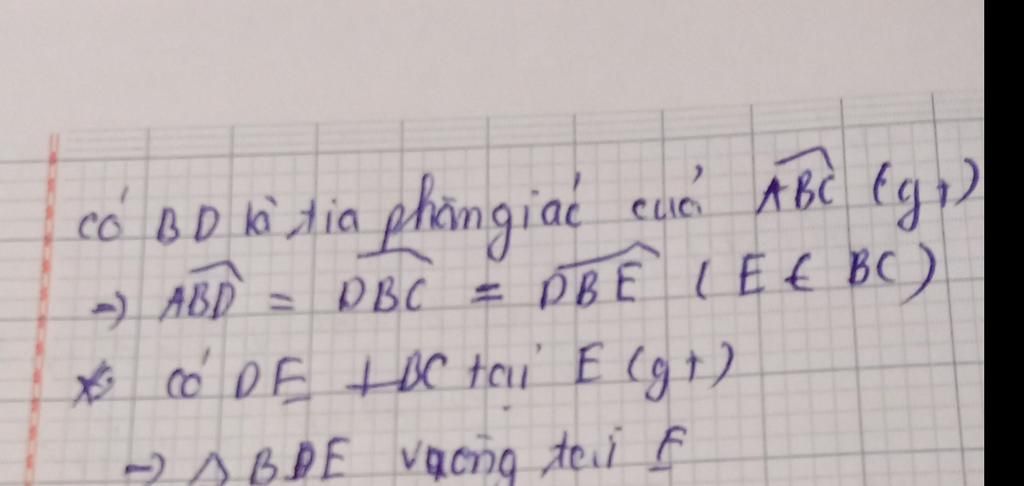 có BD là tia phân giác của ABC (gt)
=) ABD = DBC = DBE ( E € BC )
* có DE ⊥ BC tại E (gt)
=) Δ BDE vuông tại E